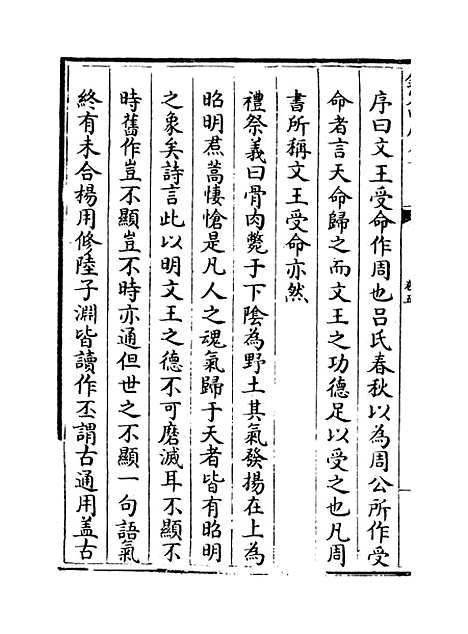 序曰文王受命作周也吕氏春秋以為周公所作受
命者言天命歸之而文王之功德足以受之也凡周
書所稱文王受命亦然
禮祭義曰骨肉斃于下陰為野土其氣發揚在上為
昭明焄蒿悽愴是凡人之魂氣歸于天者皆有昭明
之象矣詩言此以明文王之德不可磨滅耳不顯不
時舊作豈不顯豈不時亦通但世之不顯一句語氣
終有未合楊用修陸子淵皆讀作丕謂古通用盖古